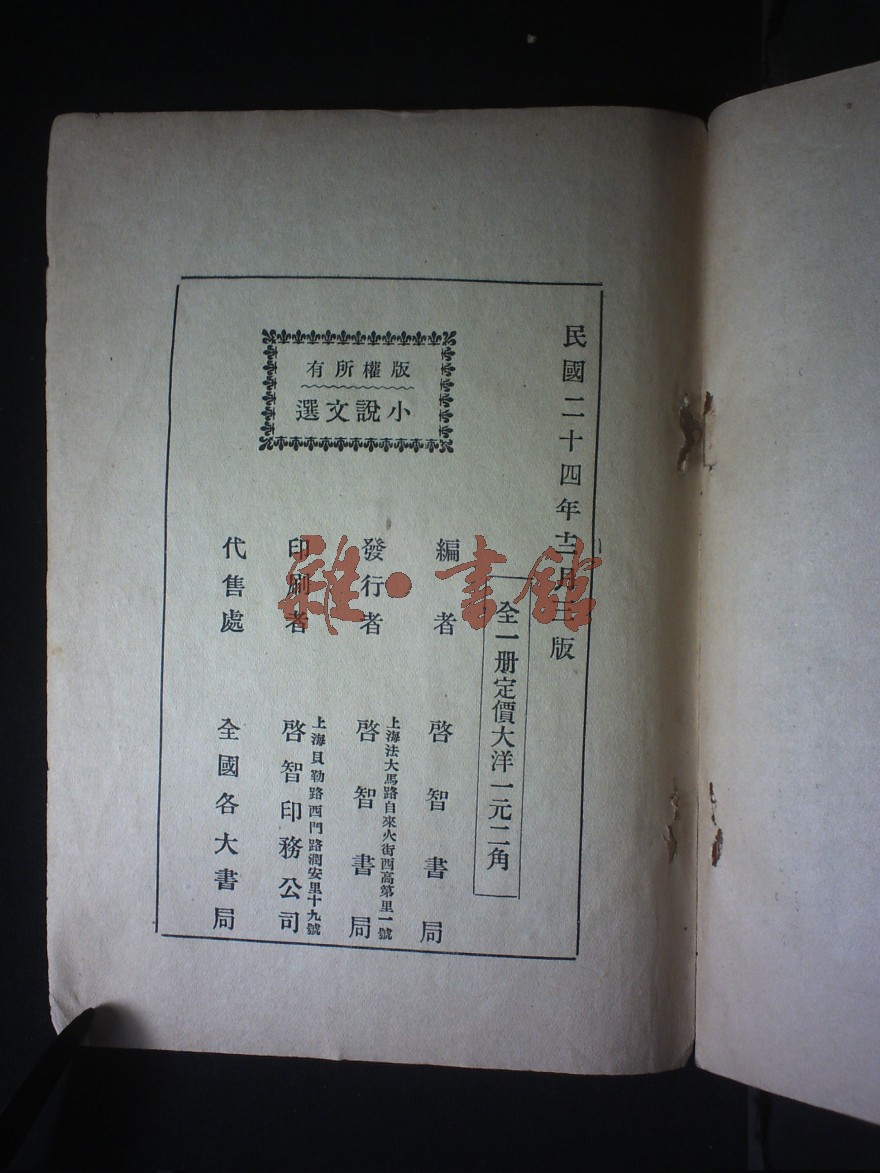 民國二十四年十二月三版
全一册定價大洋一元二角
版權所有
小說文選
編者 啓智書局
發行者 上海法大馬路自來火街西高第里一號
啓智書局
印刷者 上海貝勒路西門路潤安里十九號
啓智印務公司
代售處 全國各大書局
雜·書館